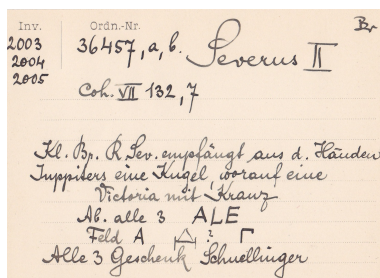 Inv. Ordn.-Nr. Br
2003 36457, a, b. Severus II
2004
2005 Coh. VII 132, 7
Kl. Br. R. Sev. empfängt aus d. Händen
Juppiters eine Kugel, worauf eine
Victoria mit Kranz
Ab. alle 3 ALE
Feld A ? Γ
Alle 3 Geschenk Schnellinger